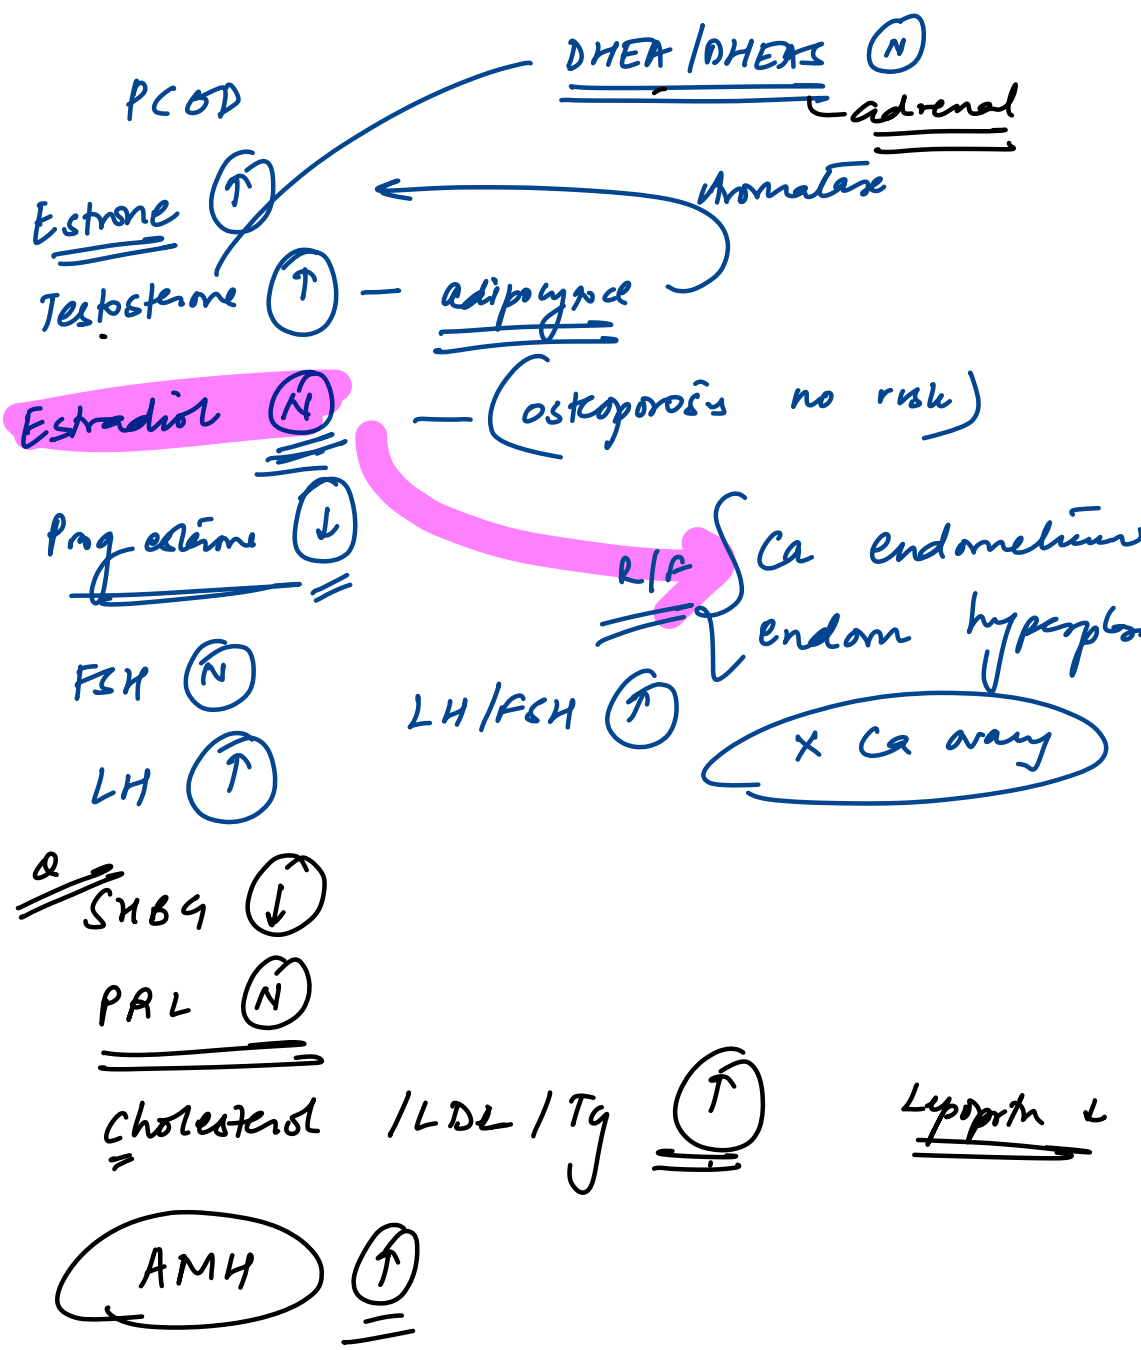 DHEA/DHEAS N
PCOD
adrenal
Aromatase
Estrone ↑
Testosterone ↑ — adipocyte
Estradiol N — (osteoporosis no risk)
Progesterone ↓
R/F { Ca endometrium
endom hyperplas
FSH N
LH/FSH ↑
x Ca ovary
LH ↑
Q SHBG ↓
PRL N
Cholesterol /LDL/Tg ↑ Lipoprtn ↓
AMH ↑